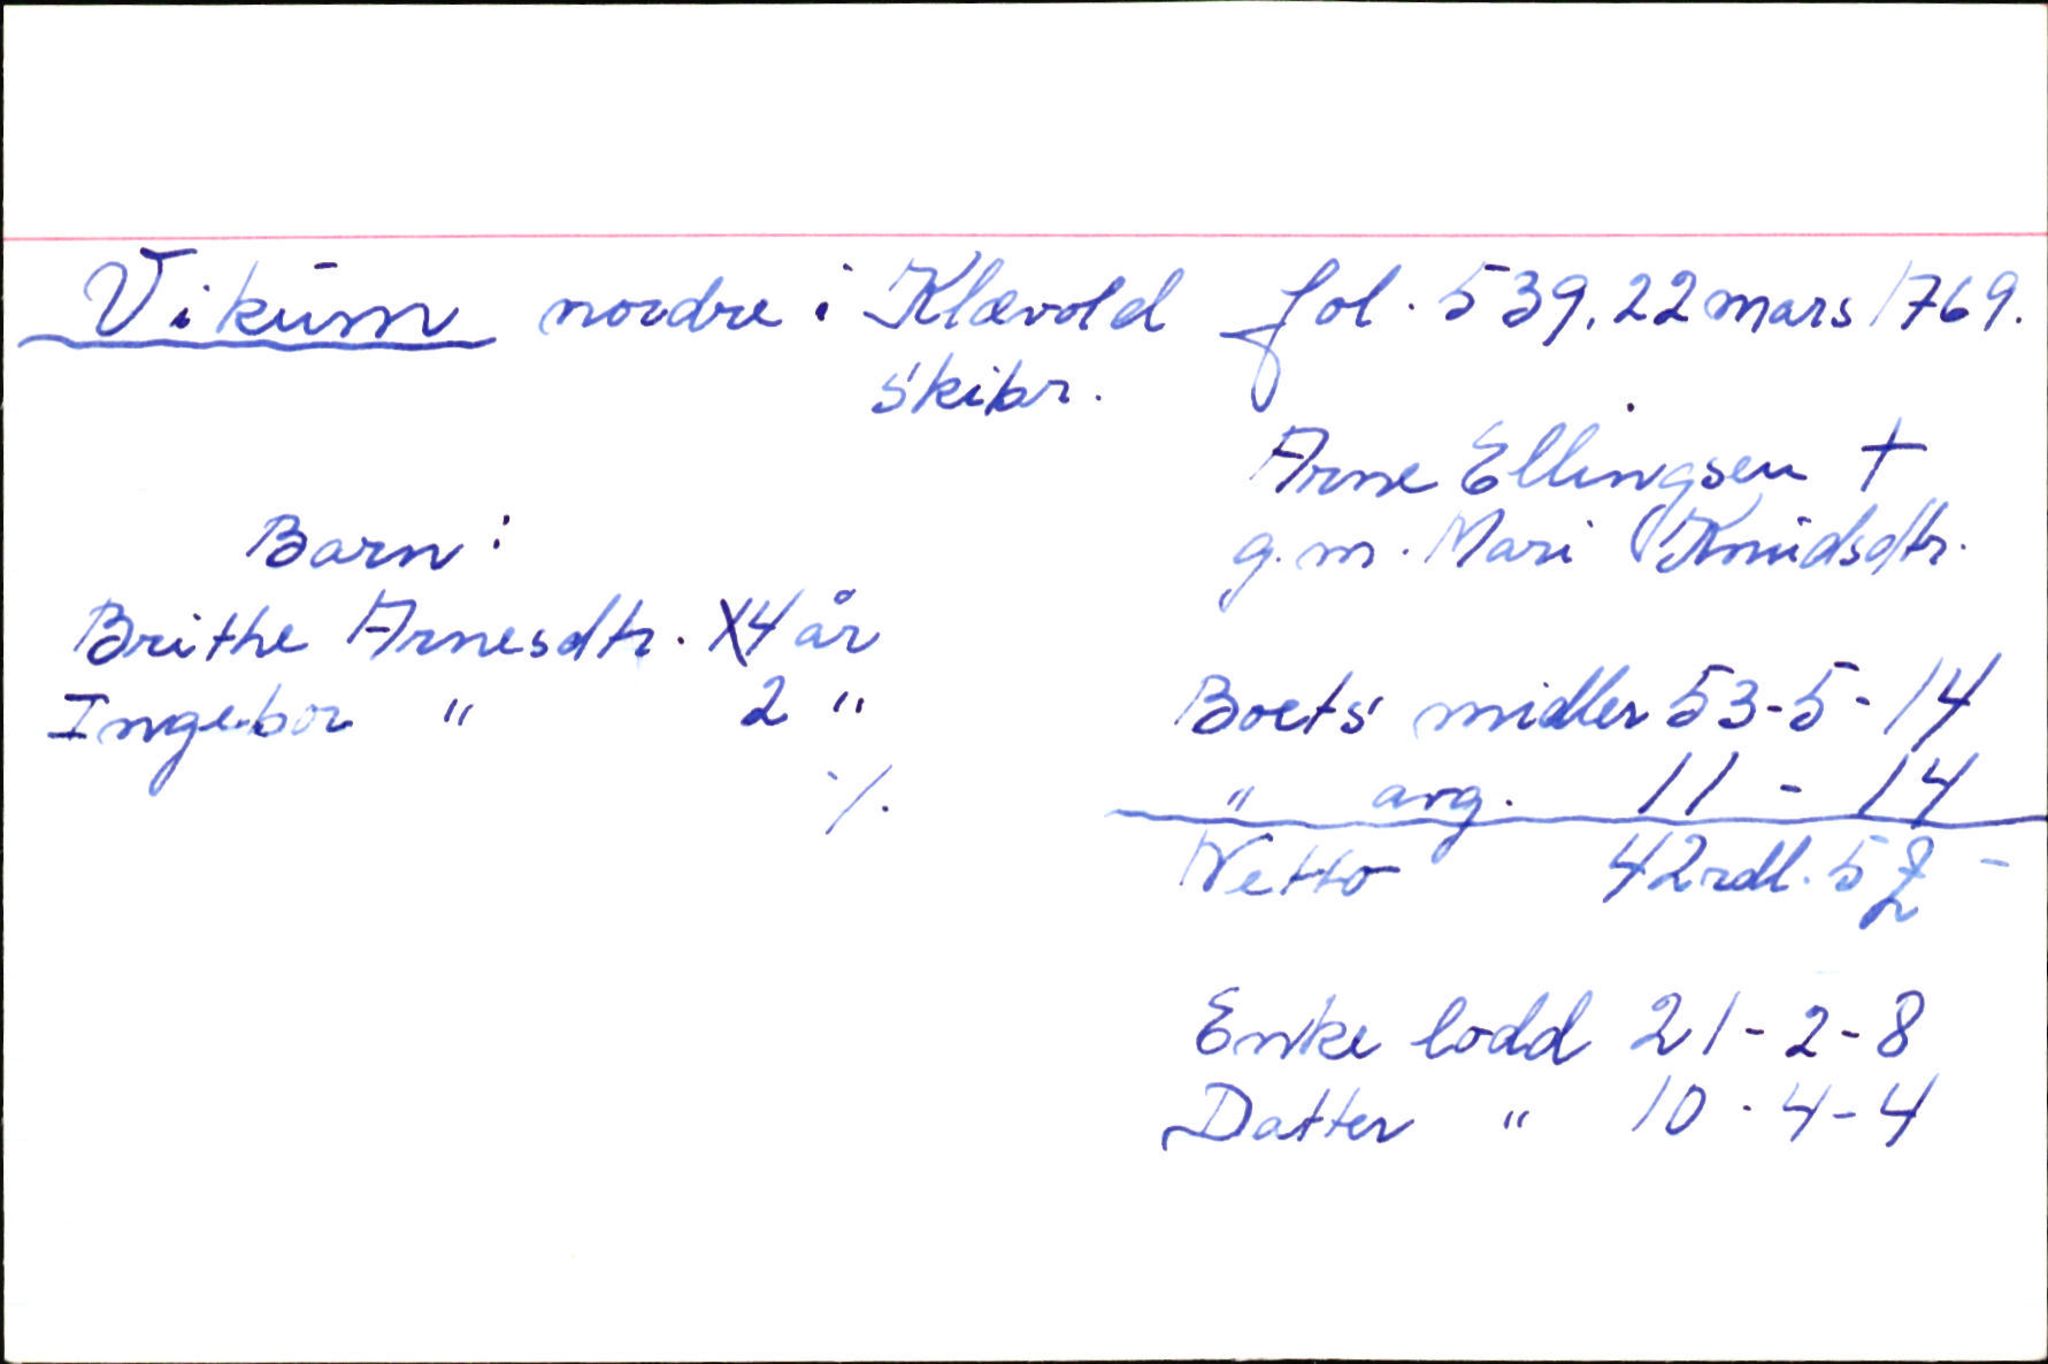 Vikum nordre i Klævold fol. 539, 22 mars 1769.
skibr.
Arne Ellingsen †
g.m. Mari Knudsdtr.
Barn:
Brithe Arnesdtr. 4 år
Ingebor " 2 "
·/.
Boets midler 53-5-14
" avg. 11 - 14
Netto 42 rdl. 5 -
Enke lodd 21-2-8
Datter " 10-4-4